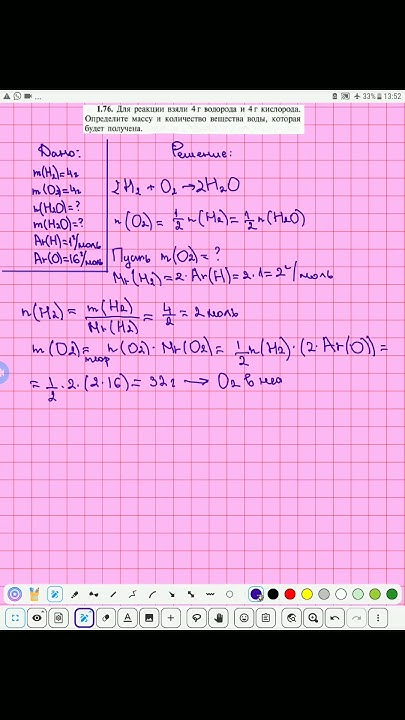 33% 13:52
1.76. Для реакции взяли 4 г водорода и 4 г кислорода.
Определите массу и количество вещества воды, которая
будет получена.
Дано:
m(H₂)=4г
m(O₂)=4г
n(H₂O)=?
m(H₂O)=?
Ar(H)=1г/моль
Ar(O)=16г/моль
Решение:
2H₂ + O₂ → 2H₂O
n(O₂) = 1/2 n(H₂) = 1/2 n(H₂O)
Пусть m(O₂) = ?
Mr(H₂) = 2·Ar(H) = 2·1 = 2г/моль
n(H₂) = m(H₂)/Mr(H₂) = 4/2 = 2 моль
m(O₂)теор = n(O₂)·Mr(O₂) = 1/2 n(H₂)·(2·Ar(O)) =
= 1/2·2·(2·16) = 32г → O₂ в неа